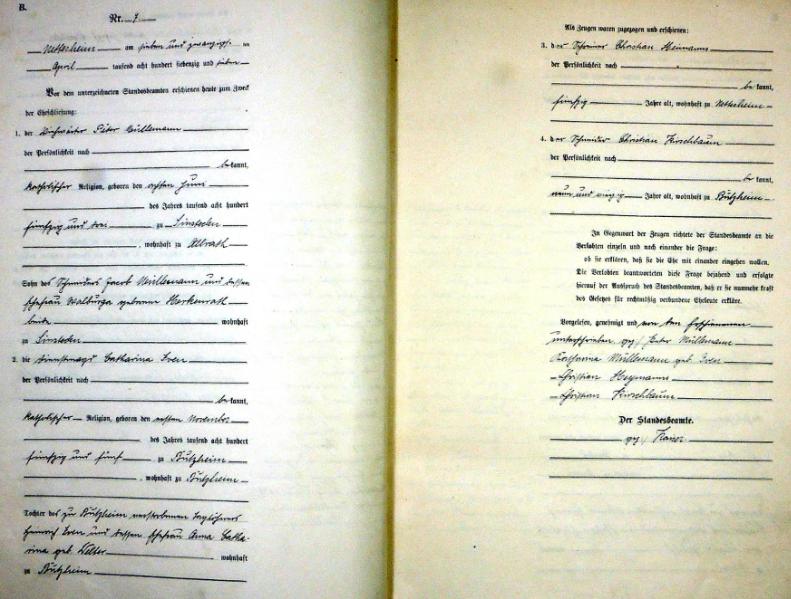 B.
Nr. 7
Nettesheim am sieben und zwanzigst. en
April tausend acht hundert siebenzig und sieben
Vor dem unterzeichneten Standesbeamten erschienen heute zum Zweck
der Eheschließung:
1. der Peter Müllemann
der Persönlichkeit nach
be kannt,
katholischer Religion, geboren den achten Juni
des Jahres tausend acht hundert
fünfzig und drei zu Sinsteden
, wohnhaft zu Allrath
Sohn des Schneiders Jacob Müllemann und dessen
Ehefrau Walburga geborene Herkenrath
beide wohnhaft
zu Sinsteden
2. die Dienstmagd Catharina Even
der Persönlichkeit nach
be kannt,
katholischer Religion, geboren den ersten November
des Jahres tausend acht hundert
fünfzig und fünf zu Butzheim
, wohnhaft zu Butzheim
Tochter des zu Butzheim verstorbenen Taglöhners
Heinrich Even und dessen Ehefrau Anna Catha-
rina geb. Welter wohnhaft
zu Butzheim
Als Zeugen waren zugezogen und erschienen:
3. der Schreiner Christian Heimanns
der Persönlichkeit nach
be kannt,
fünfzig Jahre alt, wohnhaft zu Nettesheim
4. der Schneider Christian Kirschbaum
der Persönlichkeit nach
be kannt,
neun und Jahre alt, wohnhaft zu Butzheim
In Gegenwart der Zeugen richtete der Standesbeamte an die
Verlobten einzeln und nach einander die Frage:
ob sie erklären, daß sie die Ehe mit einander eingehen wollen.
Die Verlobten beantworteten diese Frage bejahend und erfolgte
hierauf der Ausspruch des Standesbeamten, daß er sie nunmehr kraft
des Gesetzes für rechtmäßig verbundene Eheleute erkläre.
Vorgelesen, genehmigt und von den Erschienenen
unterschrieben gez/ Peter Müllemann
Katharina Müllemann geb. Even
Christian Heymanns
Christian Kirschbaum
Der Standesbeamte.
gez/